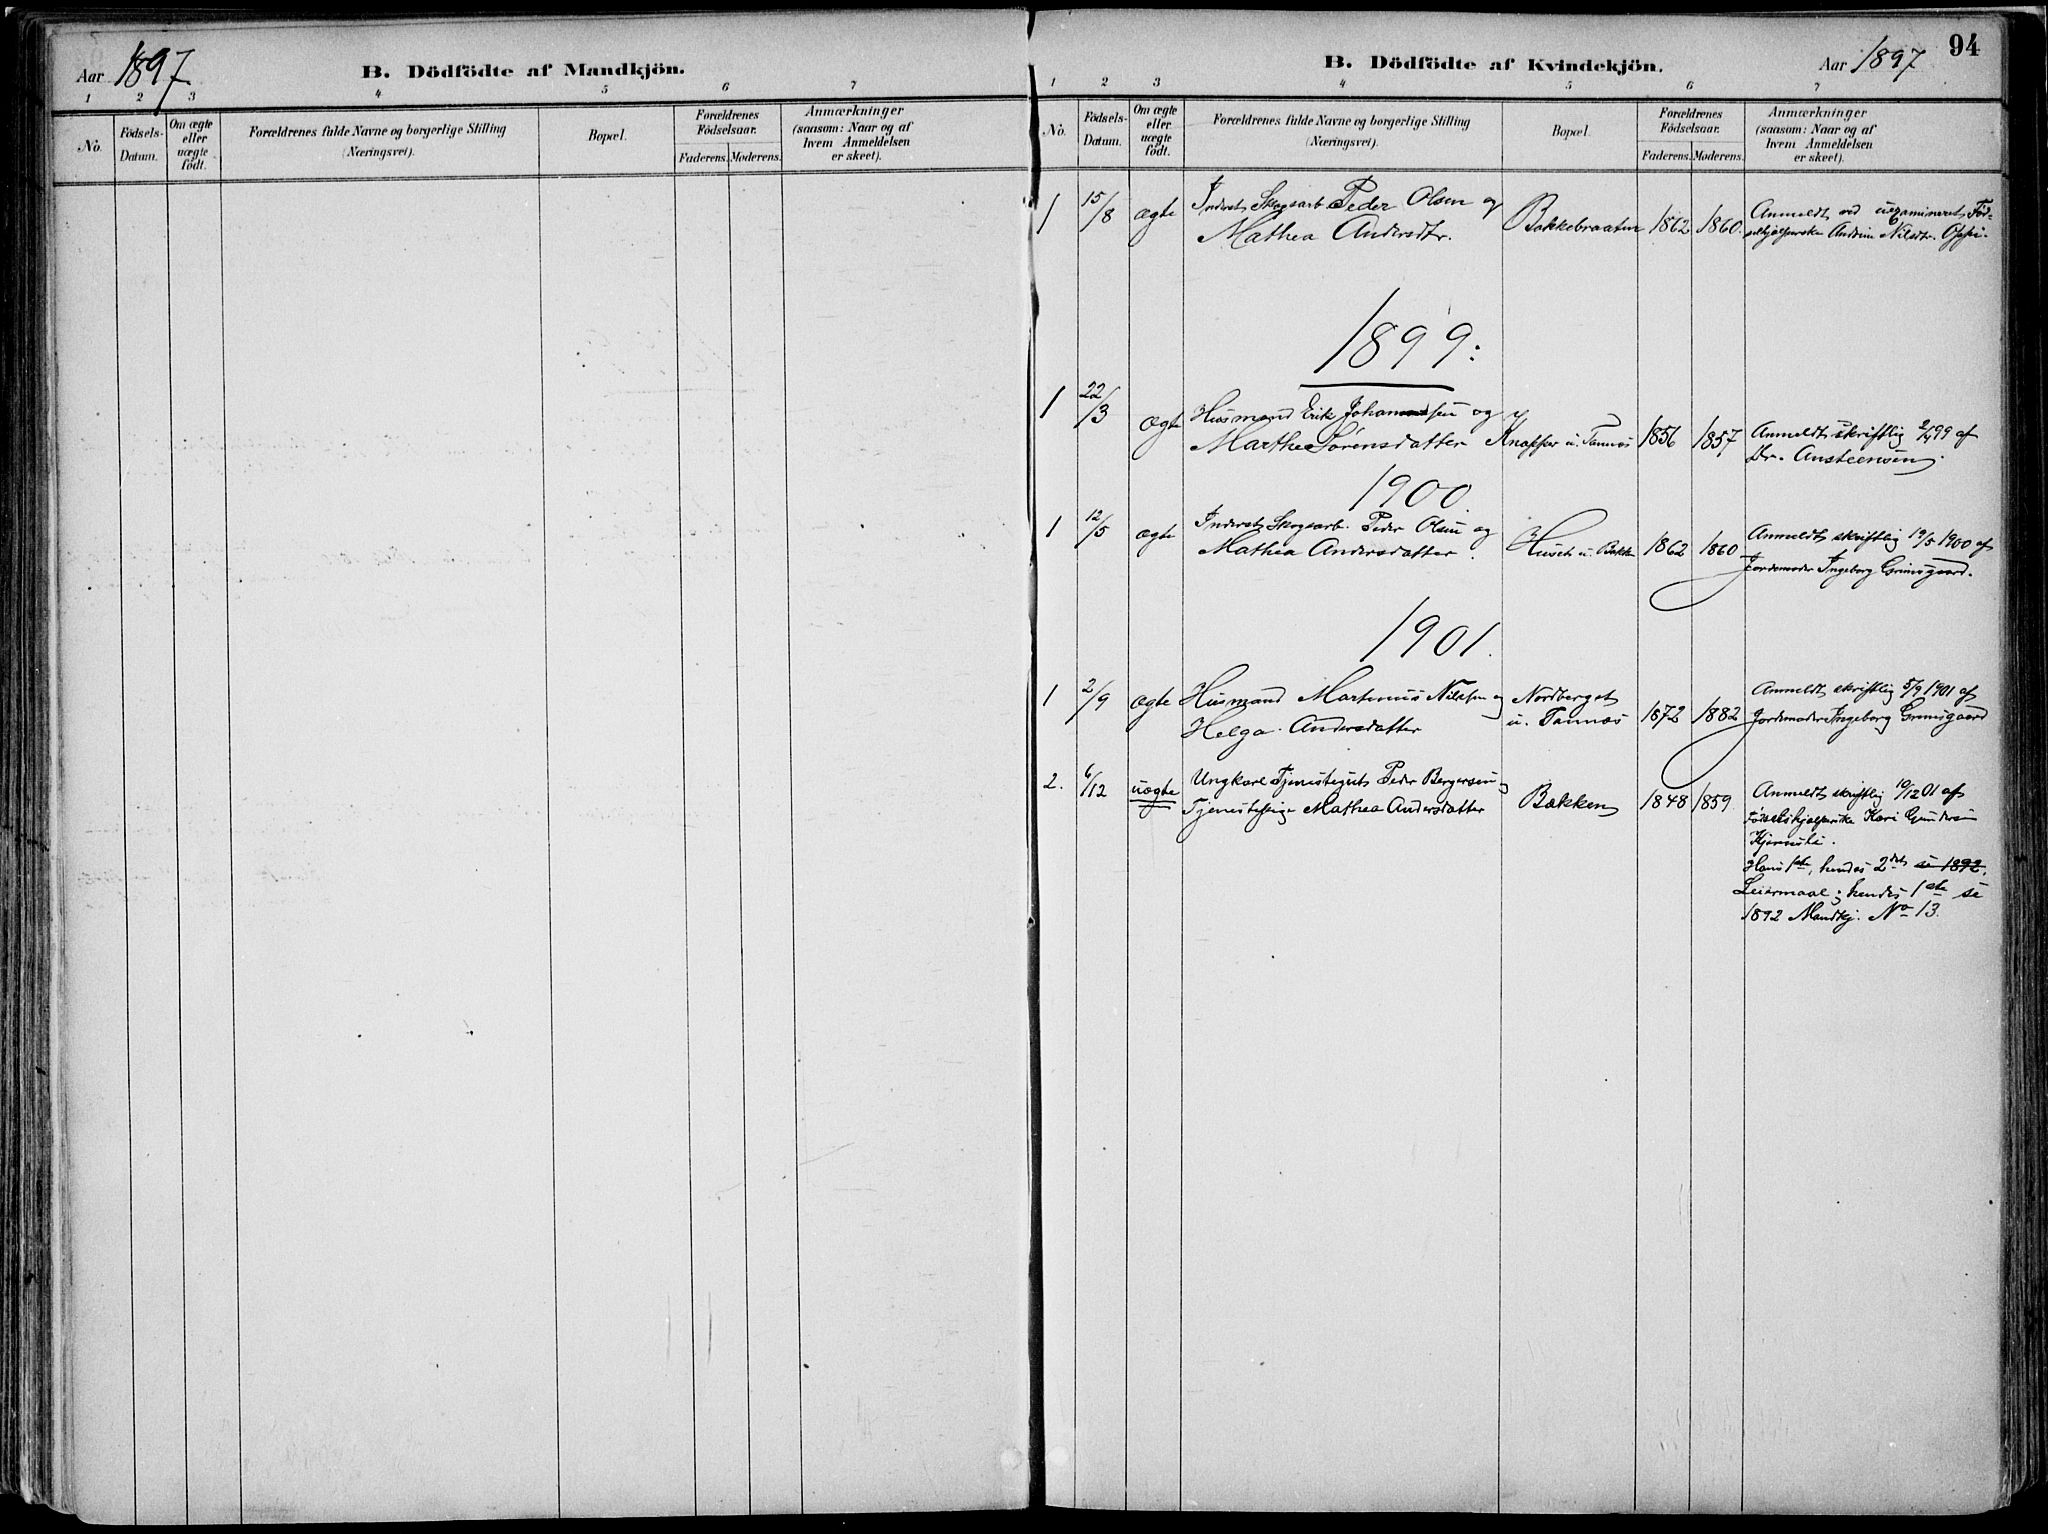 Aar 1897
B. Dödfödte af Mandkjön.
1 2 3 4 5 6 7
No.
Födsels-
Datum.
Om ægte
eller
uægte
födt.
Forældrenes fulde Navne og borgerlige Stilling
(Næringsvei).
Bopæl.
Forældrenes
Födselsaar.
Faderens. Moderens.
Anmærkninger
(saasom: Naar og af
hvem Anmeldelsen
er skeet).
94
B. Dödfödte af Kvindekjön.
Aar 1897
1 2 3 4 5 6 7
No.
Födsels-
Datum.
Om ægte
eller
uægte
födt.
Forældrenes fulde Navne og borgerlige Stilling
(Næringsvei).
Bopæl.
Forældrenes
Födselsaar.
Faderens. Moderens.
Anmærkninger
(saasom: Naar og af
hvem Anmeldelsen
er skeet).
1 15/8 ægte Inderst Skogsarb Peder Olsen og
Mathea Andersdtr. Bakkebraaten 1862 1860.
Anmeldt ved uexamineret Fød-
selhjælperske Nilsdtr.
1899:
1 22/3 ægte Husmand Erik Johannessen og
Marthe Sørensdatter Knapper u. Tannæs 1856 1857
Anmeldt skriftlig 2/4 99 af
Dr. Ansteensen.
1900.
1 12/5 ægte Inderst Skogsarb. Peder Olsen og
Mathea Andersdatter. Huset u. Bakken 1862 1860
Anmeldt skriftlig 19/5 1900 af
Jordemoder Ingeborg Grimsgaard.
1901.
1 2/9 ægte Husmand Martinus Nilssen og
Helga Andersdatter
Nordberget
u. Tannæs 1872 1882
Anmeldt skriftlig 5/9 1901 af
Jordemoder Ingeborg Grimsgaard
2. 6/12 uægte Ungkarl Tjenestegut Peder Bergersen og
Tjenestepige Mathea Andersdatter Bækken 1848 1859
Anmeldt skriftlig 10/12 01 af
Fødselshjælperske Kari Gundersen
Hans 1ste, hendes 2det se 1892.
Leiermaal; hendes 1ste se
1892 Mandkj. No 13.